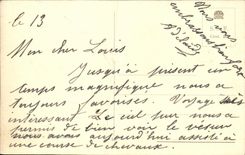 Le 13
Mon cher Louis
Jusqu'à présent un
temps magnifique nous a
toujours favorisés. Voyage très
intéressant Le ciel pur nous a
permis de bien voir le Vésuve
nous avons aujourd'hui assisté à
une course de chevaux.
Nous vous
embrassons